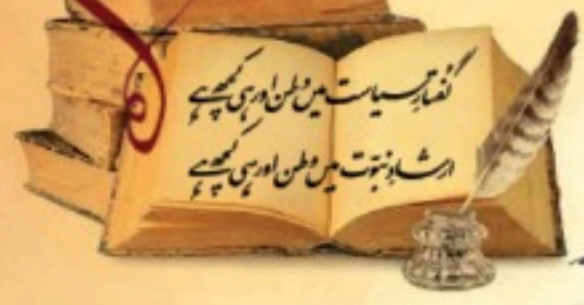 گفتارِ سیاست میں وطن اور ہی کچھ ہے
ارشادِ نبوّت میں وطن اور ہی کچھ ہے